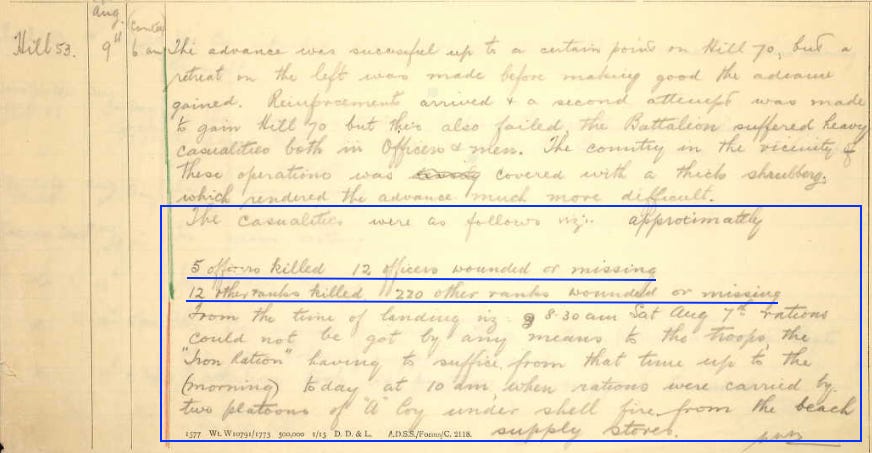 Aug.
Hill 53. 9th 6 am The advance was sucessful up to a certain point on Hill 70, but a
retreat on the left was made before making good the advance
gained. Reinforcements arrived & a second attempt was made
to gain Hill 70 but this also failed, the Battalion suffered heavy
casualities both in Officers & men. The country in the vicinity of
these operations was covered with a thick shrubbery,
which rendered the advance much more difficult.
The casualities were as follows viz:. approximately
5 officers killed 12 officers wounded or missing
12 other ranks killed 220 other ranks wounded or missing
From the time of landing viz. 8.30 am Sat Aug 7th rations
could not be got by any means to the troops, the
"Iron Ration" having to suffice from that time up to the
(morning) today at 10 am when rations were carried by
two platoons of "A" Coy under shell fire from the beach
supply stores.
1577 Wt. W10791/1773 500,000 1/15 D. D. & L. A.D.S.S./Forms/C. 2118.